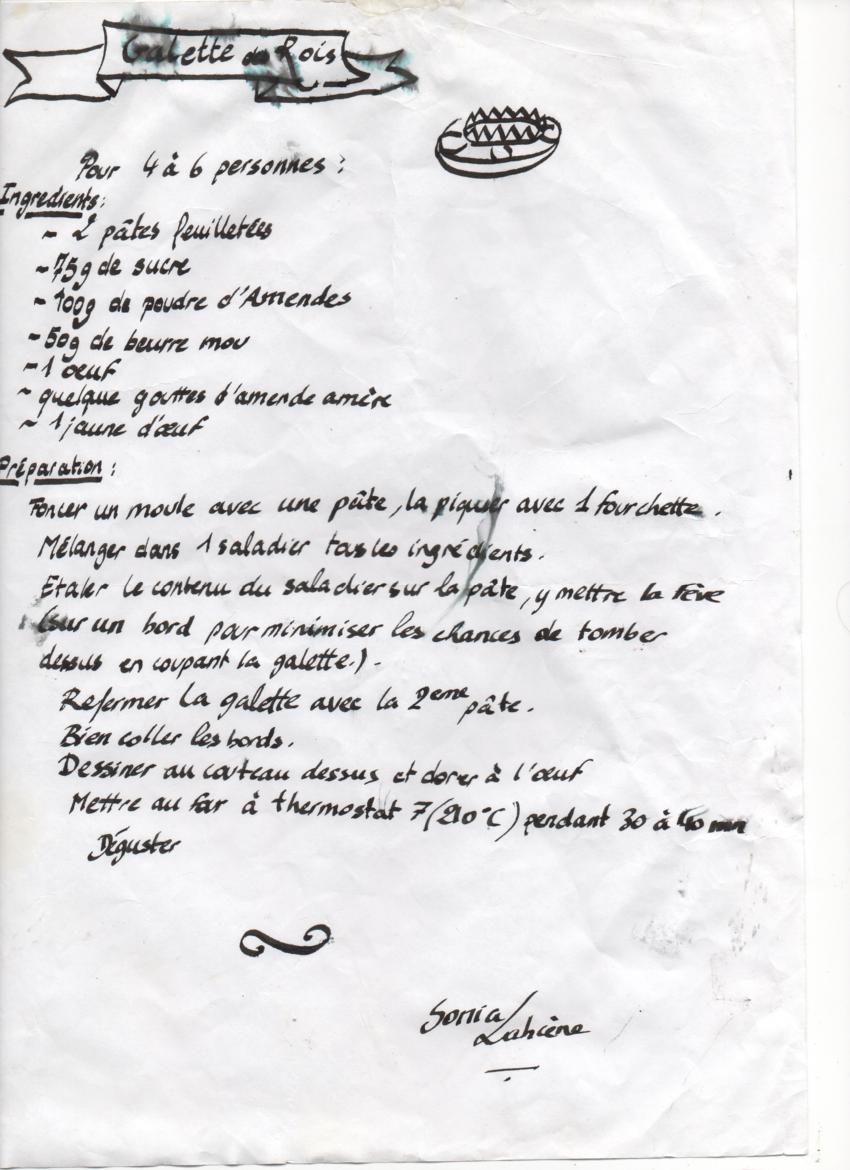 Galette des Rois
Pour 4 à 6 personnes :
Ingredients :
- 2 pâtes feuilletées
- 75g de sucre
- 100g de poudre d'Amendes
- 50g de beurre mou
- 1 oeuf
- quelque gouttes d'amende amère
- 1 jaune d'œuf
Préparation :
Foncer un moule avec une pâte, la piquer avec 1 fourchette.
Mélanger dans 1 saladier tous les ingrédients.
Etaler le contenu du saladier sur la pâte, y mettre la fève
(sur un bord pour minimiser les chances de tomber
dessus en coupant la galette.).
Refermer la galette avec la 2eme pâte.
Bien coller les bords.
Dessiner au couteau dessus et dorer à l'œuf
Mettre au four à thermostat 7 (210°C) pendant 30 à 40 mn
Déguster
Sonia
Lahcène